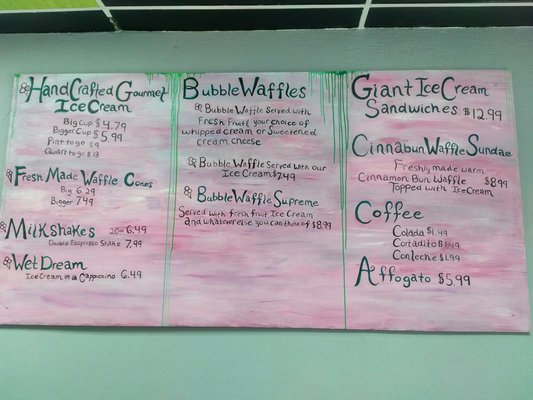 HandCrafted Gourmet
Ice Cream
Big Cup $4.79
Bigger Cup $5.99
Pint to go $9
Quart to go $13
Fresh Made Waffle Cones
Big 6.29
Bigger 7.49
Milkshakes 20oz 6.49
Double Espresso Shake 7.99
Wet Dream
Ice Cream in a Cappuccino 6.49
Bubble Waffles
Bubble Waffle Served with
Fresh Fruit & your choice of
whipped cream or Sweetened
cream cheese
Bubble Waffle Served with our
Ice Cream $7.49
Bubble Waffle Supreme
Served with fresh fruit Ice Cream
and whatever else you can think of $8.99
Giant Ice Cream
Sandwiches $12.99
Cinnabun Waffle Sundae
Freshly made warm
Cinnamon Bun Waffle $8.99
Topped with Ice Cream
Coffee
Colada $1.99
Cortadito $1.49
Con leche $1.99
Affogato $5.99